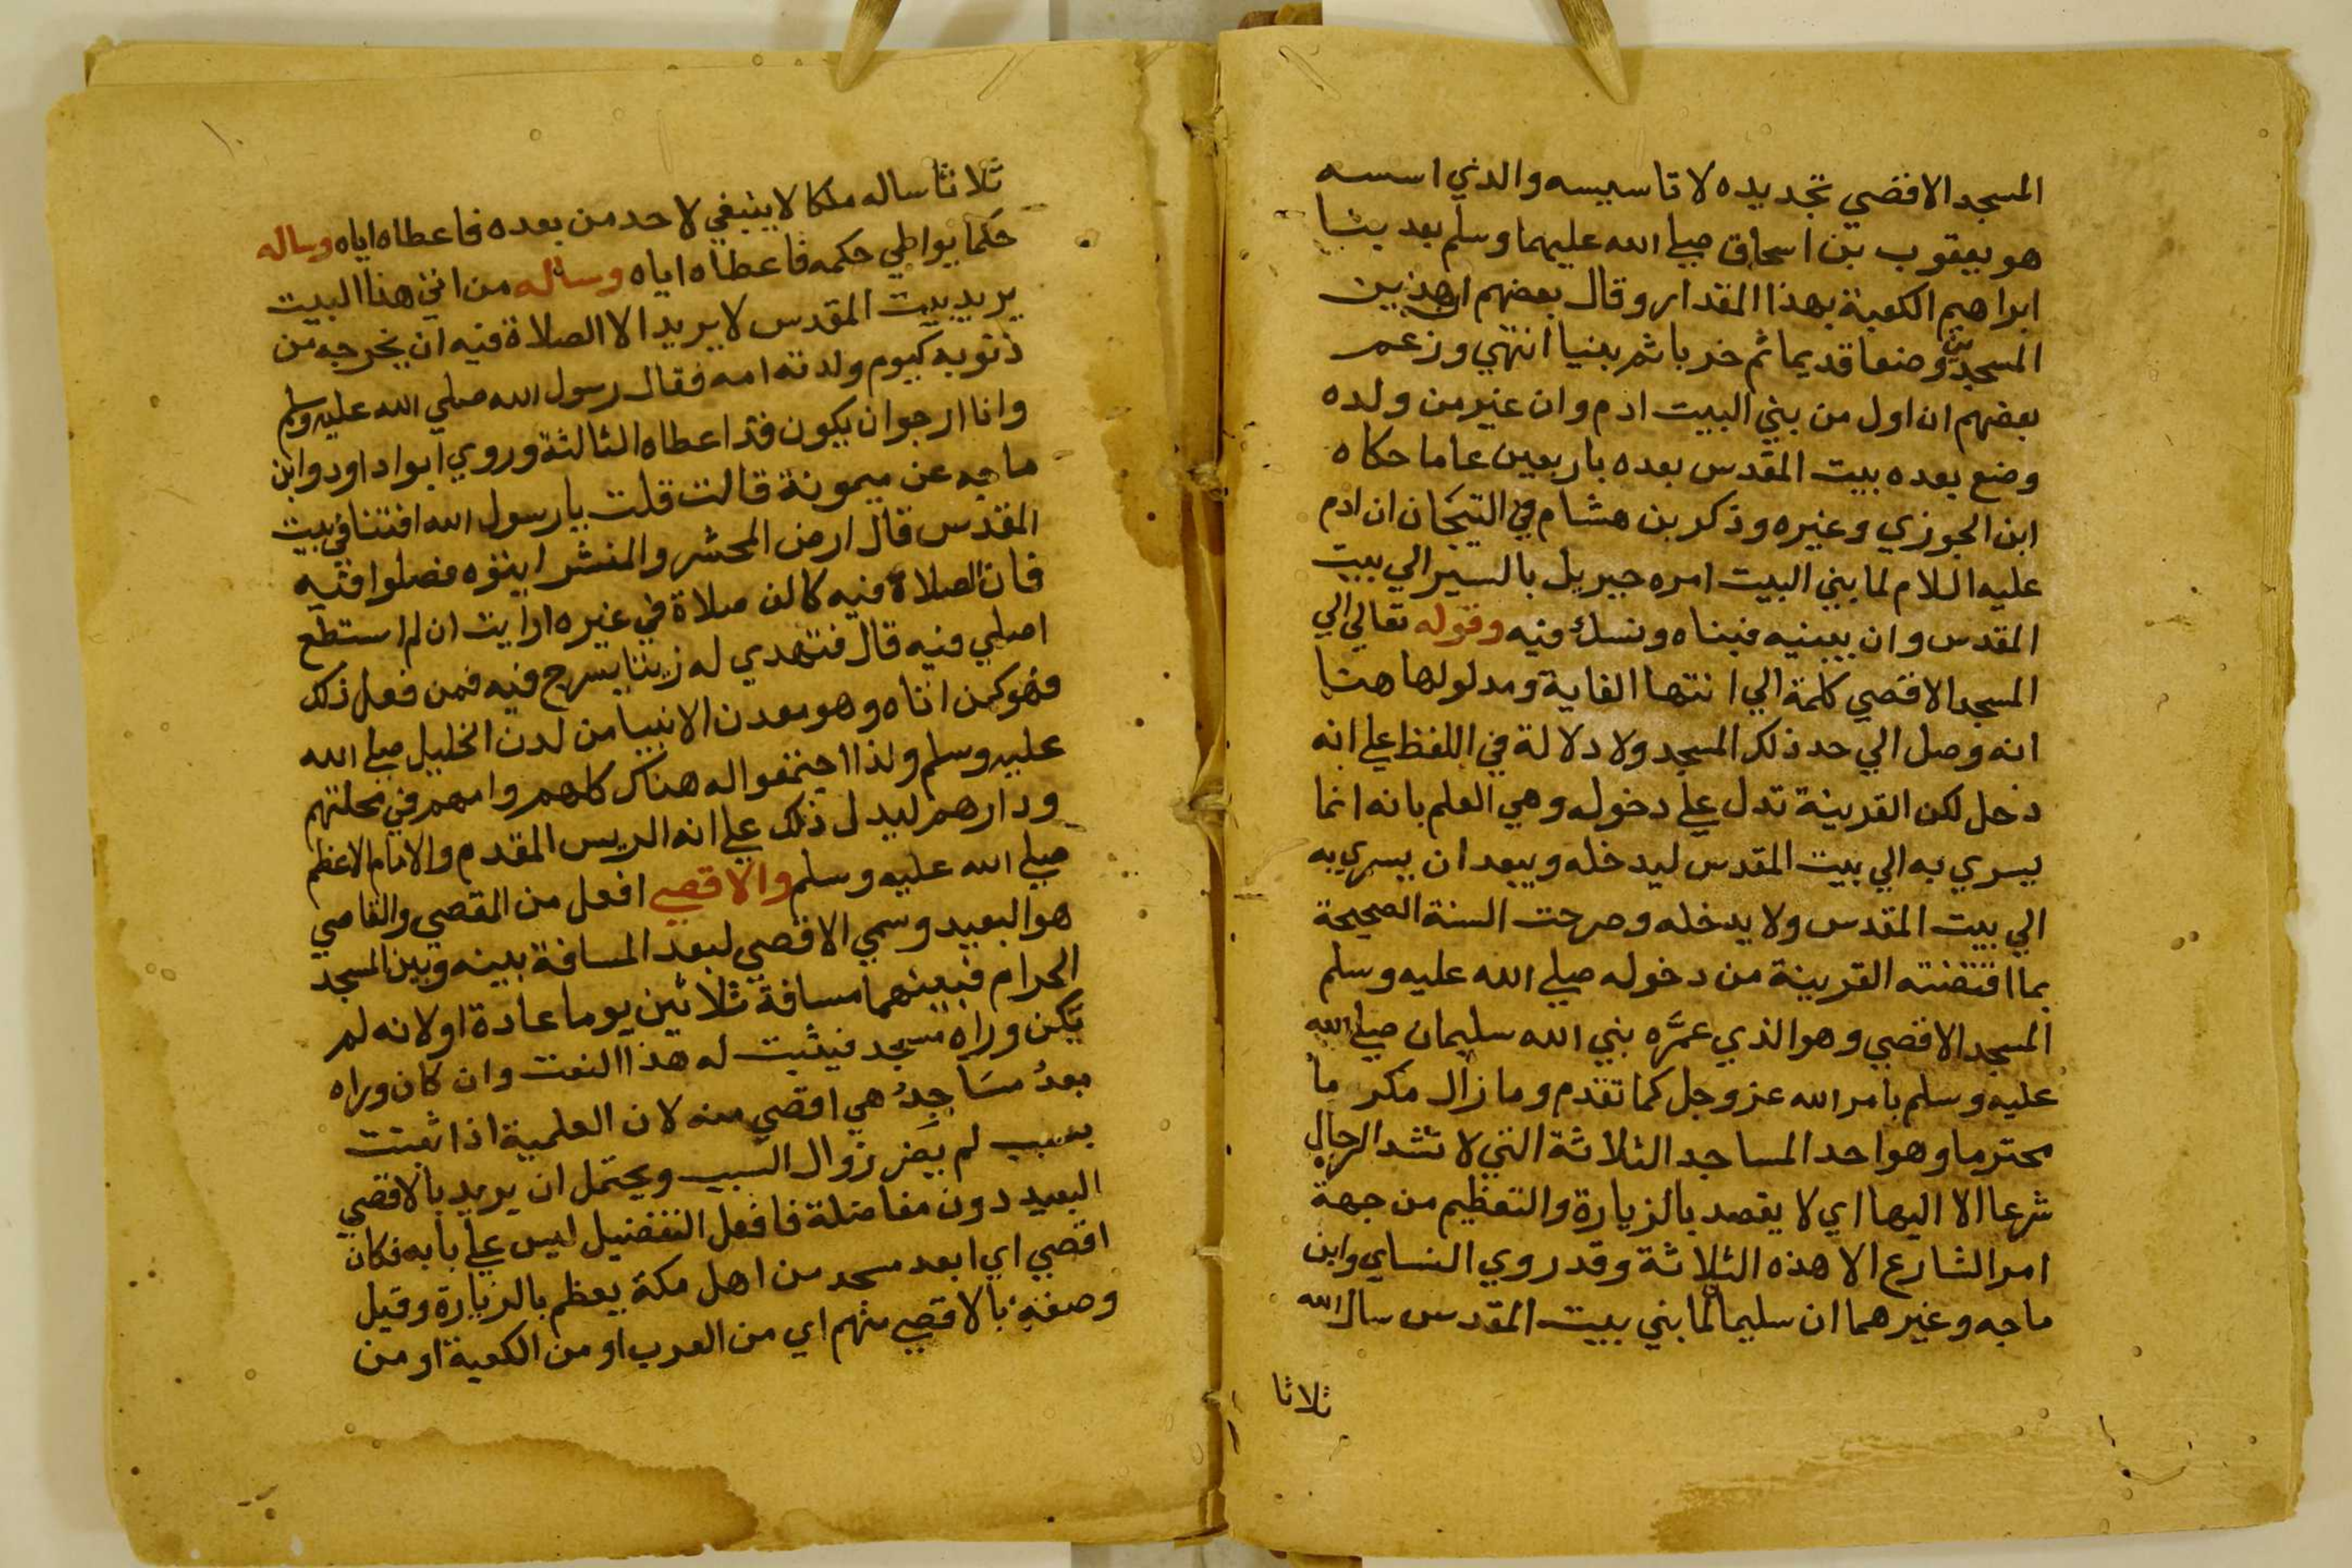 المسجد الاقصي تجديده لا تاسيسه والذي اسسه
هو يعقوب بن اسحاق صلي الله عليهما وسلم بعد بنا
ابراهيم الكعبة بهذا المقدار وقال بعضهم ان هذين
المسجدين وضعا قديما ثم خربا ثم بنيا انتهي وزعم
بعضهم ان اول من بني البيت ادم وان غير من ولده
وضع بعده بيت المقدس بعده باربعين عاما حكاه
ابن الجوزي وغيره وذكر بن هشام في التيجان ان ادم
عليه السلام لما بني البيت امره جبريل بالسير الي بيت
المقدس وان يبنيه فبناه ونسك فيه وقوله تعالي الي
المسجد الاقصي كلمة الي انتها الغاية ومدلولها هنا
انه وصل الي حد ذلك المسجد ولا دلالة في اللفظ علي انه
دخل لكن القرينة تدل علي دخوله وهي العلم بانه انما
يسري به الي بيت المقدس ليدخله ويبعد ان يسري به
الي بيت المقدس ولا يدخله وصرحت السنة الصحيحة
بما اقتضته القرينة من دخوله صلي الله عليه وسلم
المسجد الاقصي وهو الذي عمَّره نبي الله سليمان صلي الله
عليه وسلم بامر الله عز وجل كما تقدم وما زال مكرما
محترما وهو احد المساجد الثلاثة التي لا تشد الرحال
شرعا الا اليها اي لا يقصد بالزيارة والتعظيم من جهة
امر الشارع الا هذه الثلاثة وقد روي النساي وابن
ماجه وغيرهما ان سليمان لما بني بيت المقدس سال الله
ثلاثا
ثلاثا ساله ملكا لا ينبغي لاحد من بعده فاعطاه اياه وساله
حكما يواطي حكمه فاعطاه اياه وساله من اتي هذا البيت
يريد بيت المقدس لا يريد الا الصلاة فيه ان يخرجه من
ذنوبه كيوم ولدته امه فقال رسول الله صلي الله عليه وسلم
وانا ارجوا ن يكون قد اعطاه الثالثة وروي ابوا داود وابن
ماجه عن ميمونة قالت قلت يا رسول الله افتنا في بيت
المقدس قال ارض المحشر والمنشر ايتوه فصلوا فيه
فان الصلاة فيه كالف صلاة في غيره ارايت ان لم استطع
اصلي فيه قال فتهدي له زيتا يسرج فيه فمن فعل ذلك
فهو كمن اتاه وهو معدن الانبيا من لدن الخليل صلي الله
عليه وسلم ولذا اجتمعوا له هناك كلهم وامهم في محلتهم
ودارهم ليدل ذلك علي انه الريس المقدم والامام الاعظم
صلي الله عليه وسلم والاقصي افعل من القصي والقاصي
هو البعيد وسمي الاقصي لبعد المسافة بينه وبين المسجد
الحرام فبينهما مسافة ثلاثين يوما عادة او لانه لم
يكن وراه مسجد فيثبت له هذا النعت وان كان وراه
بعدُ مسَاجدُ هي اقصي منه لان العلمية اذا ثبتت
بسبب لم يضر زوال السبب ويحتمل ان يريد بالاقصي
البعيد دون مفاضلة فافعل التفضيل ليس علي بابه فكان
اقصي اي ابعد مسجد من اهل مكة يعظم بالزيارة وقيل
وصفه بالاقصي منهم اي من العرب او من الكعبة او من